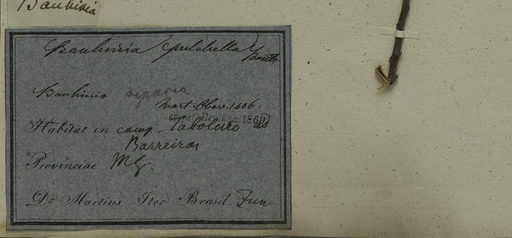 Bauhinia
Bauhinia pulchella Benth
Bauhinia
Mart. Obs. 1406.
Habitat in camp. Taboleiro ad
Barreiras
Provinciae MG.
Dr. Martius Iter Brasil. Jun